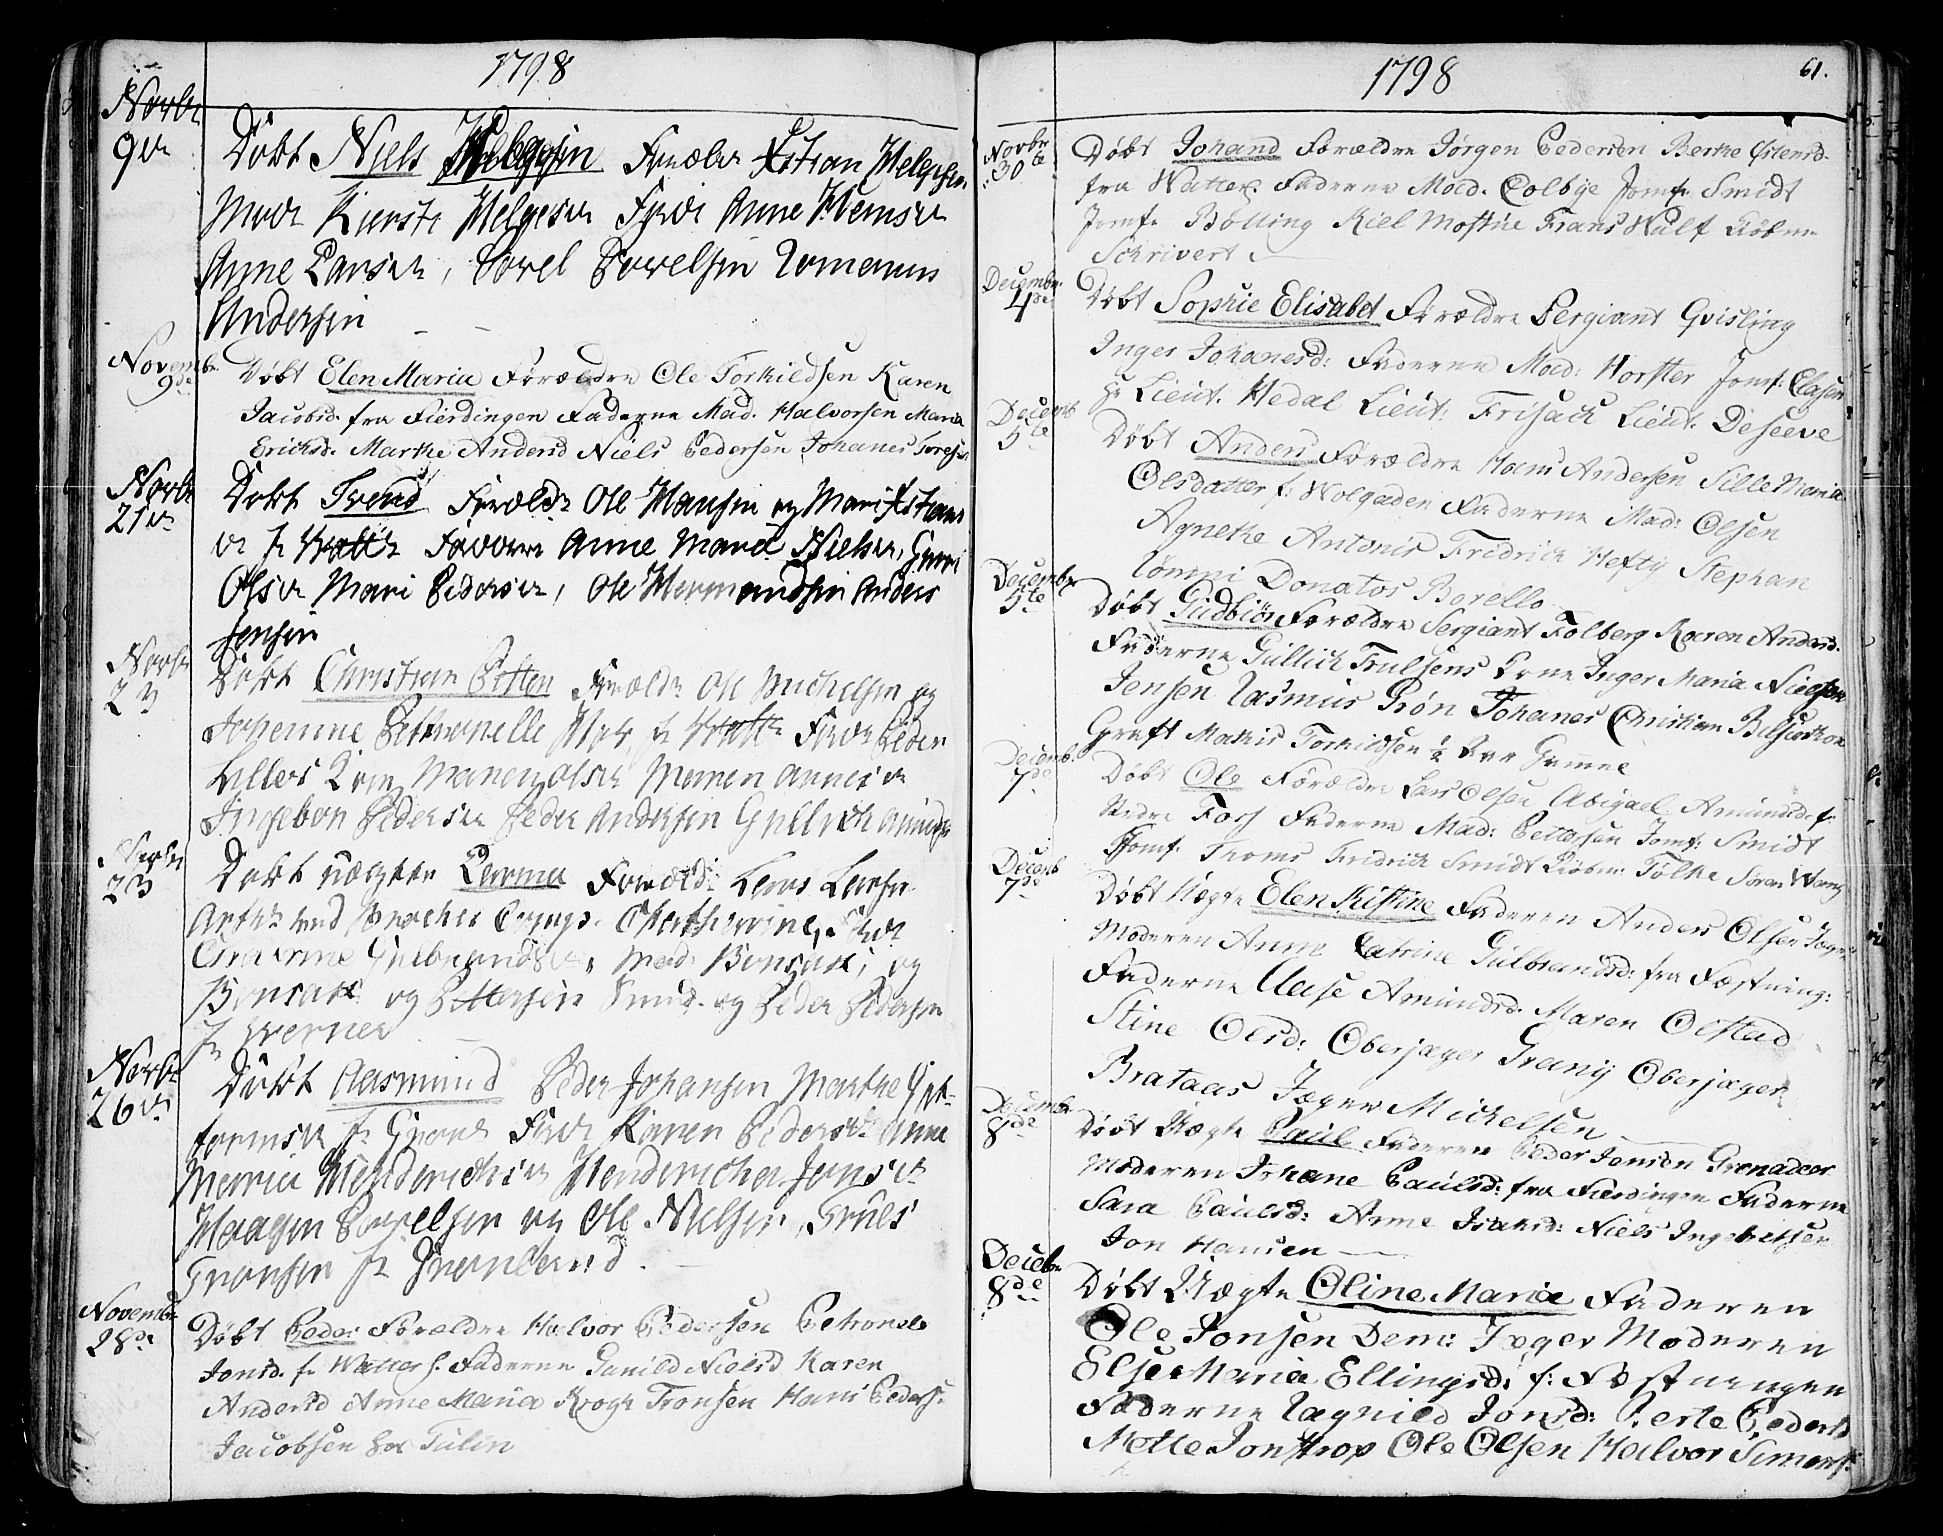 1798
Novbr
9de
Döbt Niels Helgesen Foræld Xstian Helgesen
Mod Kierste Helgesd Fadr Anne Hemsd
Anne Larsd, Povel Povelsen
Andersen
Novembr
9de
Döbt Elen Maria Forældre Ole Torkildsen Karen
Jacobsd. fra Fierdingen Faderne Mad. Halvorsen Maria
Ericksd. Marthe Andersd Niels Pedersen Johanes
Novbr
21de
Döbt Svend Forældr Ole Hansen og Mari Xstians
d f Fadderne Anne Maria Nielsd, Guri
Olsd Mari Pedersd, Ole Hermandsen Anders
Jensen
Novbr
23
Döbt Christian Petter Forældr Ole Michelsen og
Johanne Petternelle f Fadr Peder
Maren Olsd Maren
Ingebor Pedersd Peder Andersen Gullich
Novbr
23
Döbt uægte Foræld: Lars Larsen
ved Comp.
Gulbrandsd, Mad: Bonsak, og
Bonsak og Pettersen Smid. og Peder Pedersen
Novbr
26de
Döbt Aasmund Peder Johansen Marthe Gut-
tormsd f Fadr Karen Pedersd Anne
Maria Henderichsd Henderiche Jensd
Haagen Povelsen og Ole Nielsen, Truls
Tronsen f Grønland.
Novembr
28de
Döbt Peder Forældre Halvor Pedersen Petronele
Jonsd. f. Watter f. Faderne Gunild Nielsd Karen
Andersd Anne Maria Krogh Tronsen Hans Peders:
Jacobsen Tulin
1798
61.
Novbr
30te
Döbt Johand Forældre Jörgen Pedersen Berthe
fra Watter Faderne Mad. Colbye Jomf Smidt
Jomf. Bölling Kiel Mostue Frans Wulf Kiöbm
Schrivert
Decembr
4de
Döbt Sophie Elisabet Forældre Sergiant Qvisling
Inger Johanesd: Faderne Mad: Horster Jomf: Clasen
Hr Lieut. Hedal Lieut: Frisach Lieut. Deseeve
Decemb
5te
Döbt Anders Forældre Hans Andersen Sille Maria
Olsdatter f: Wolgaden Faderne Mad: Olsen
Agnethe Antonis Fridrich Hefty Stephan
Tommi Donatos Borello
Decembr
5te
Döbt Gudbiör Forældre Sergiant Folberg Karen Andersd.
Faderne Gullich Trulsens Kone Inger Maria Nielsen
Jensen Rasmus Prön Johanes Christian
Graft Mathis Torkildsen
Decemb.
7de
Döbt Ole Forældre Lars Olsen Abigael Amundsd: f:
Nedre Fors Faderne Mad: Pettersen Jomf: Smidt
Jomf. Thoms Fridrich Smidt Kiöbm: Tölke Sören Wang
Decemb
7de
Döbt Uægte Elen Kistine Faderen Anders Olsen Jæger
Moderen Anne Catrine Gulbrandsd: fra Fæstning:
Faderne Aase Amundsd. Maren Olstad
Stine Olsd: Oberjæger Granij Oberjæger
Brataas Jæger Michelsen
Decembr
8de
Döbt Uægte Paul Faderen Peder Jensen Grenadeer
Moderen Johane Paulsd: fra Fierdingen Faderne
Sara Paulsd: Anne Isaksd: Niels Ingebretsen
Jon Hansen
Decebr
8de
Döbt Uægte Oline Maria Faderen
Ole Jonsen Dem: Jæger Moderen
Else Maria Ellingsd: f: Fæstningen
Faderne Ragnild Jonsd: Berte Pedersd
Mette Jonstrop Ole Olsen Halvor Simens: